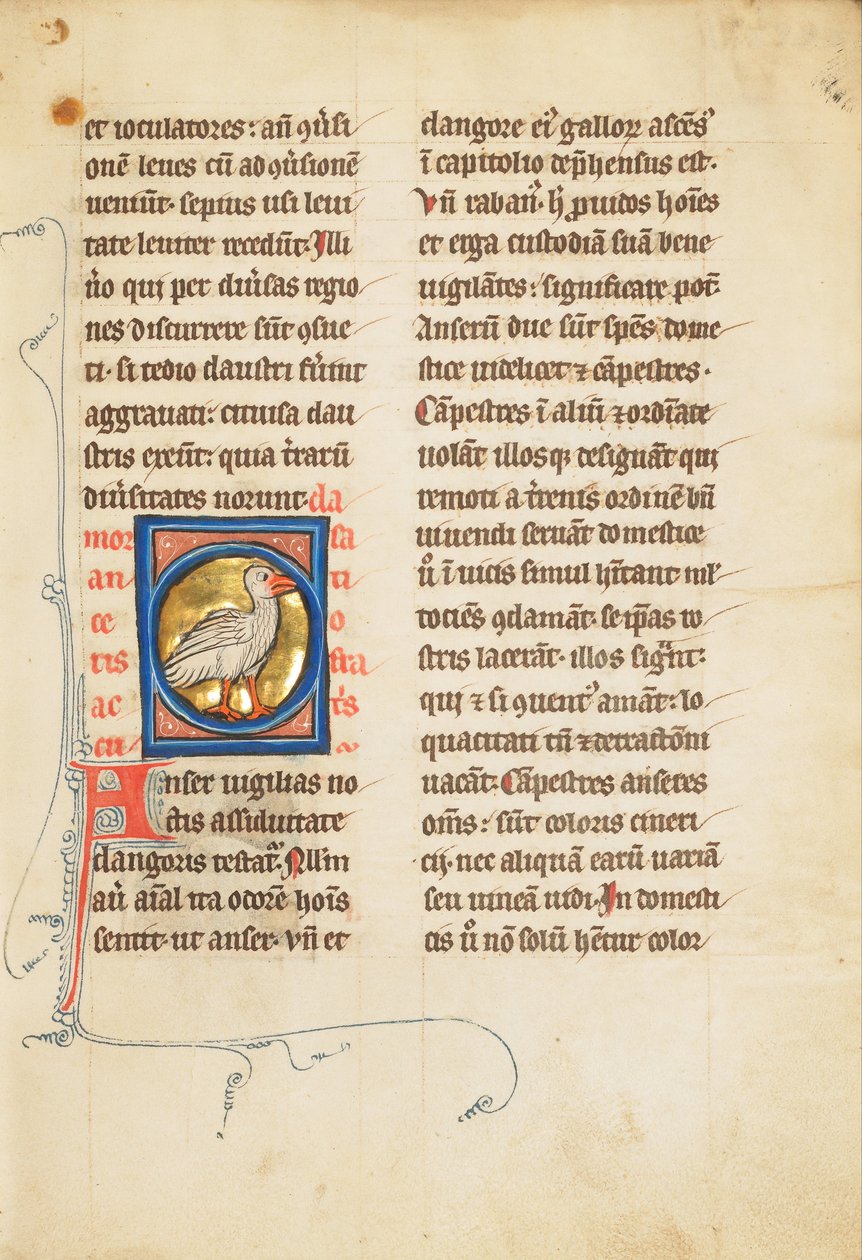 et ioculatores: an̄ ꝯu̓si
onē leues cū ad ꝯu̓sionē
ueniūt· sepius usi leui
tate leuiter recedūt· Illi
u̓o qui per diu̓sas regio
nes discurrere sūt ꝯsue
ti· si tedio claustri fu̓int
aggrauati: citius a clau
stris exeūt: quia t̓rarū
diu̓sitates norunt· da
mor sa
an ti
ce o
ris stra
ac t̓s
cu
Anser uigilias no
ctis assiduitate
clangoris testat᷑· Nllm
au̓ aīal ita odorē hoīs
sentit· ut anser· vn̄ et
clangore ei᷒ galloꝝ ascēs᷒
ī capitolio dep̄hensus est·
Vn̄ raban᷒· h̓ ꝓuidos hoīes
et erga custodiā suā bene
uigilātes: significare pot̄·
Anserū due sūt sp̄es dome
stice uidelicet ⁊ cāpestres·
Cāpestres ī altū ⁊ ordīate
uolāt illosqꝫ designāt qui
remoti a t̓renis ordinē bn̄
uiuendi seruāt domestice
u̓o ī uicis simul h̄itant ml̓
tociēs ꝯclamāt· se ip̄as ro
stris lacerāt· illos sig̾nt:
qui ⁊ si ꝯuent᷒ amāt: lo
quacitati tn̄ ⁊ detractōni
uacāt· Cāpestres anseres
om̄s: sūt coloris cineri
cij· nec aliquā earū uariā
seu uineā uidi· In domesti
cis u̓o nō solū h̄etur color